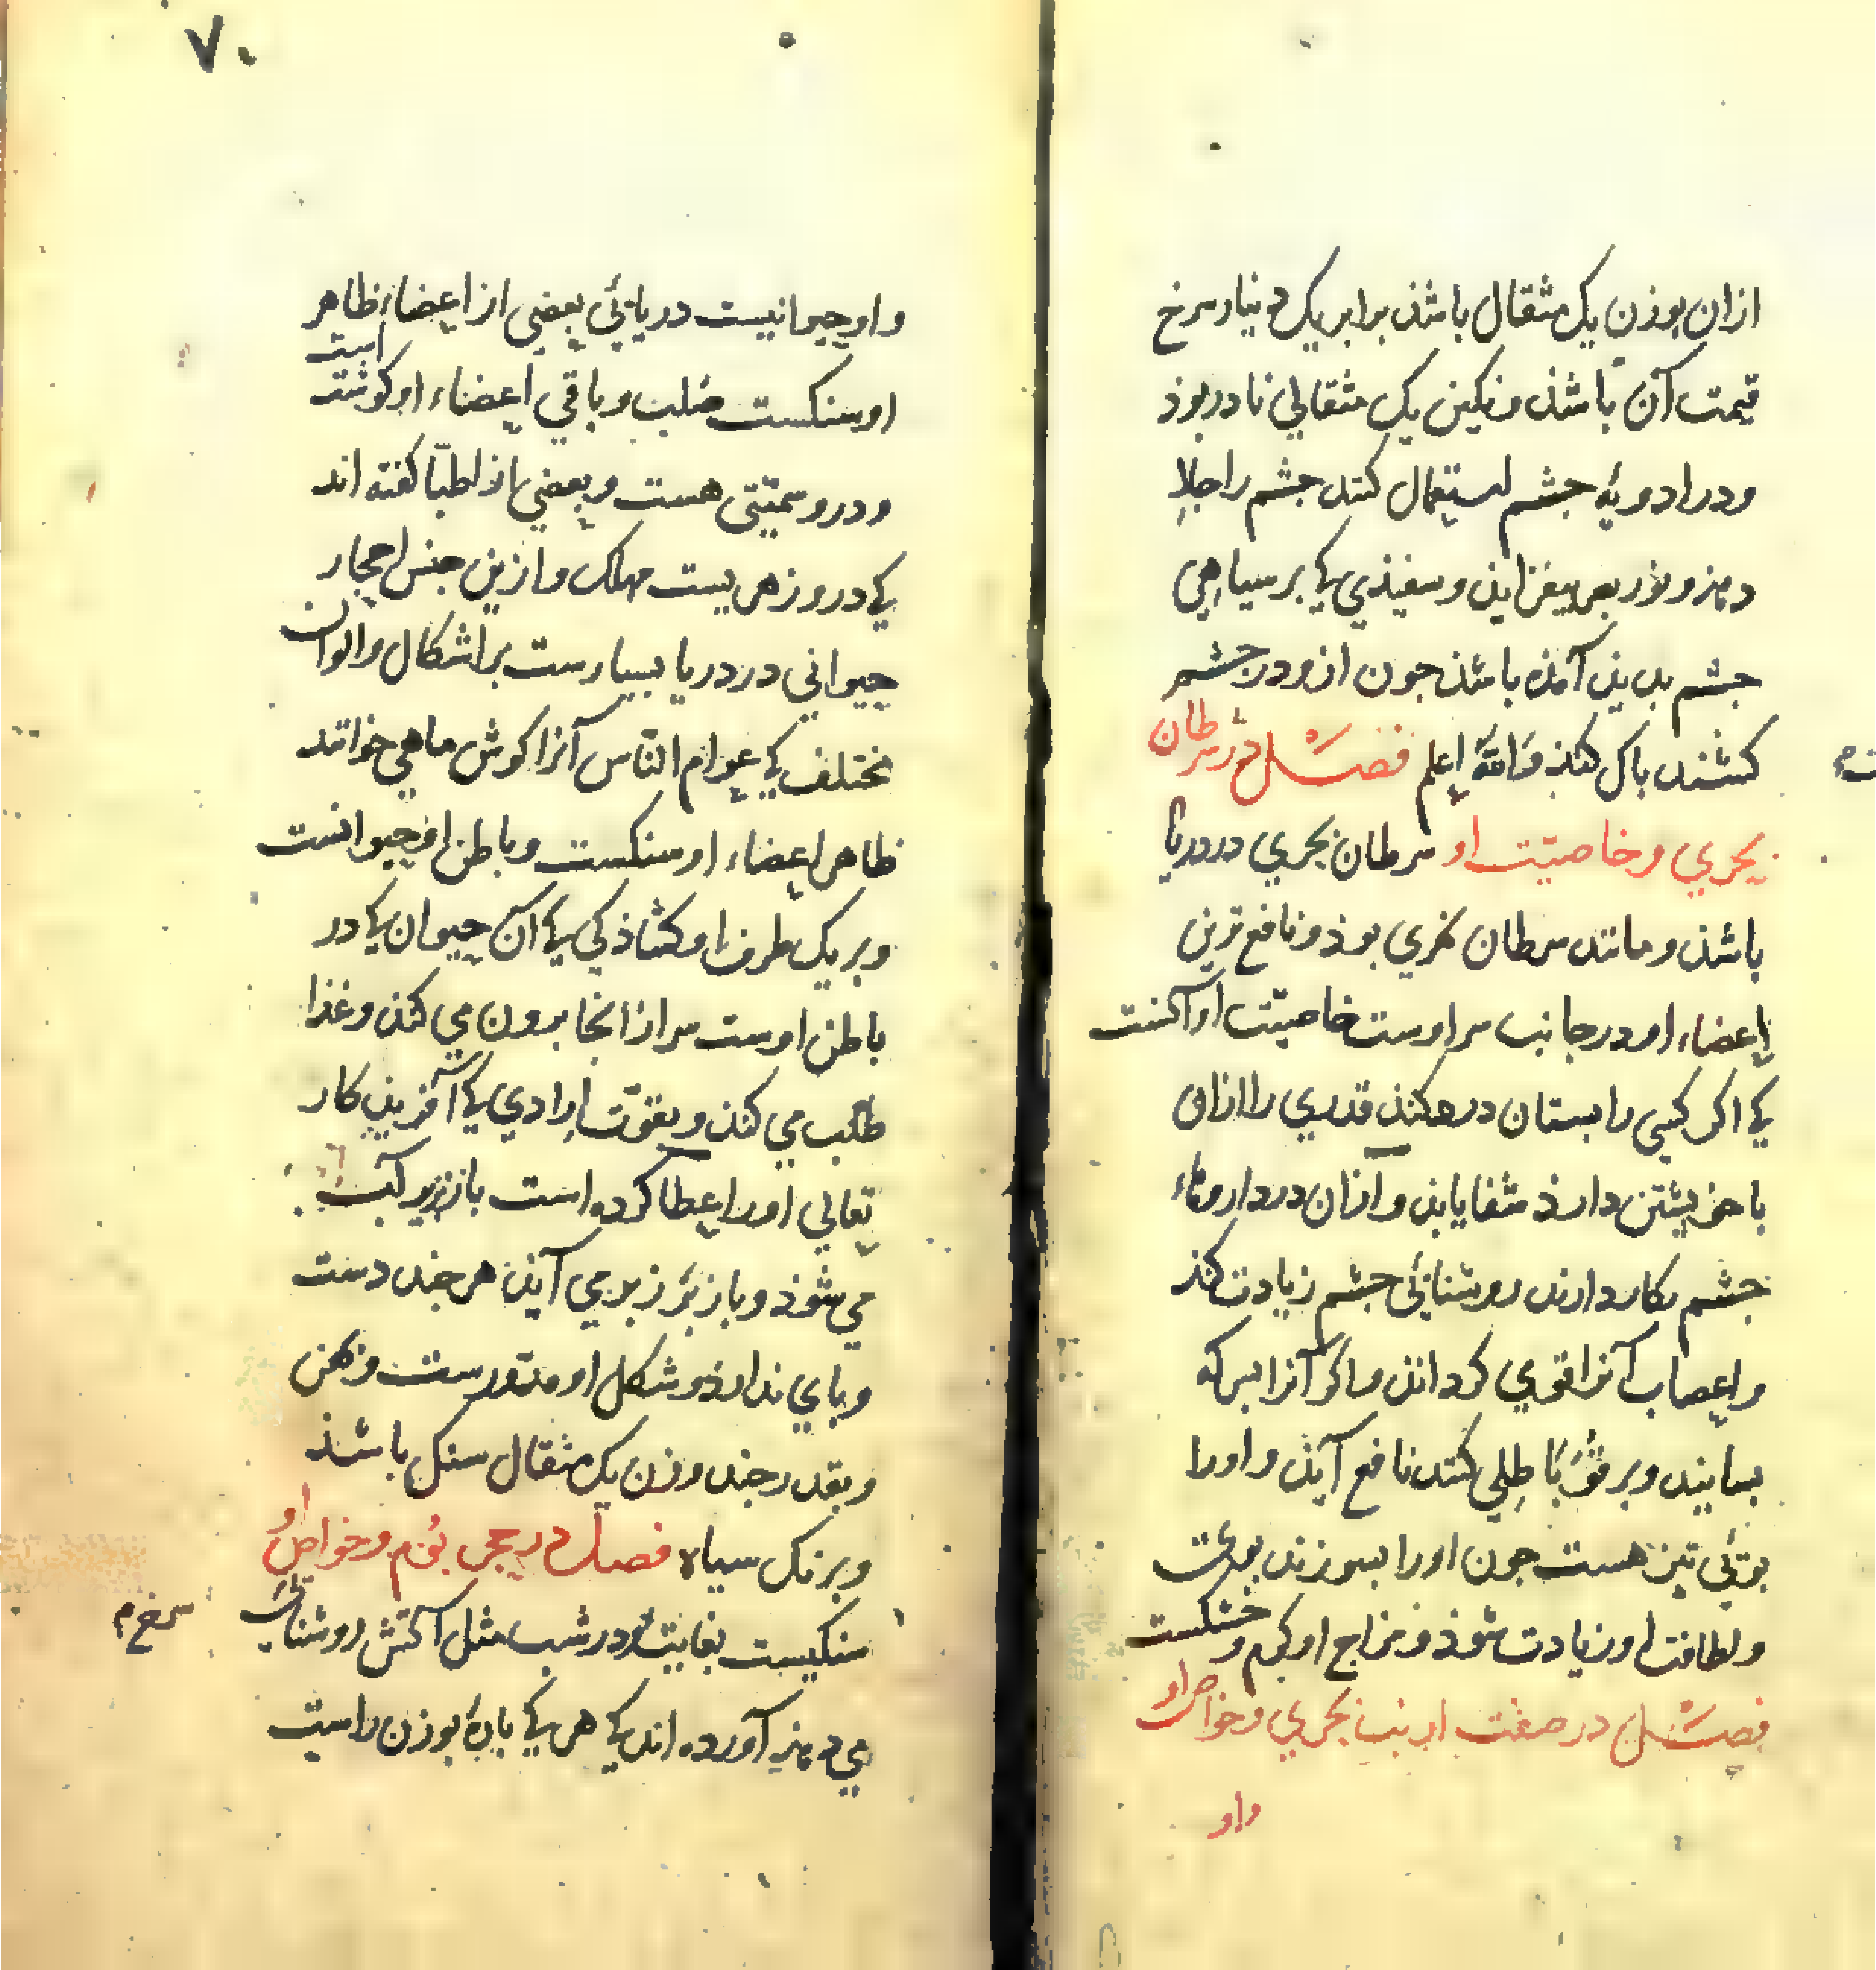 ازان بوزن یک مثقال باشذ برابر یک دینار سرخ
قیمت آن باشذ ونکین یک مثقالی نادر بوذ
ودر ادویهٔ جشم استعمال کنند جشم را جلا
دهد ونور بصر بیفزایذ وسفیذی کی بر سیاهی
جشم بدیذ آمذه باشذ جون ازو در جشم
کشند باک کند والله اعلم فصل در سرطان
بحری وخاصیّت او سرطان بحری در دریا
باشذ ومانند سرطان نهری بوذ ونافع ترین
اعضاء او در جانب سر اوست خاصیّت او آنست
کی اکر کسی را بستان درد کند قدری را ازان
با خویشتن دارذ شفا یابذ وازان در داروهاء
جشم بکار دارند روشنائی جشم زیادت کند
واعصاب آنرا قوی کرداند واکر آنرا بسرکه
بسایند وبر قوبا طلی کنند نافع آیذ واورا
بوئی تیز هست جون اورا بسوزند بویش
ولطافت او زیادت شوذ ومزاج او کرم وخشکست
فصل در صفت ارنب بحری وخواص او
واو
۷۰
واو حیوانیست دریائی بعضی از اعضاء ظاهر
او سنکست صلب وباقی اعضاء او کوشت است
ودرو سمّیّتی هست وبعضی از اطبّا کفته اند
کی درو زهریست مهلک وازین جنس احجار
حیوانی در دریا بسیارست بر اشکال والوان
مختلف کی عوام النّاس آنرا کوش ماهی خوانند
ظاهر اعضاء او سنکست وباطن او حیوانست
وبر یک طرف او کشاذکی کی آن حیوان کی در
باطن اوست سر ازانجا بیرون می کند وغذا
طلب می کند وبقوّت ارادی کی آفریذکار
تعالی اورا عطا کرده است باز زیر آب
می شوذ وباز بر زبر می آیذ هر جند دست
وبای ندارذ وشکل او مدوّرست وبهن
وبقدر جند وزن یک مثقال سنک باشذ
وبرنک سیاه فصل در حجر بوم وخواص او
سنکیست بغایت ودر شب مثل آتش روشنائی
سرخ م
می دهد آورده اند کی هر یکی بارهٔ بوزن راست